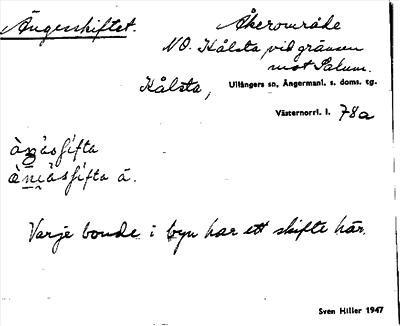 Ängesskiftet.
Åkerområde
NO. Kålsta, vid gränsen
mot Salum.
Kålsta,
Ullångers sn, Ångermanl. s. doms. tg.
Västernorrl. l. 78a
Varje bonde i byn har ett skifte här.
Sven Hiller 1947